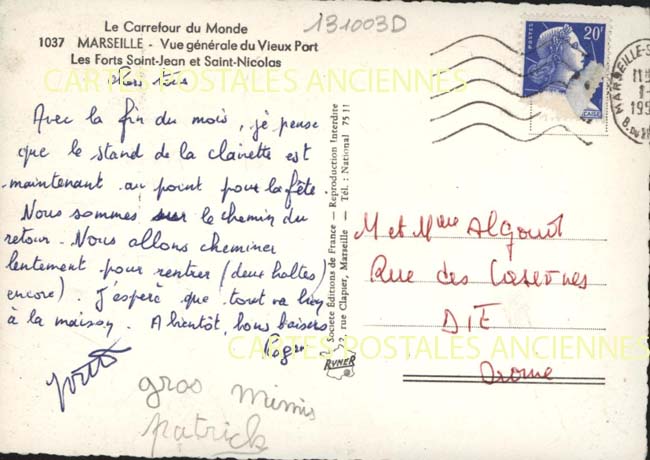 Le Carrefour du Monde
131003D
1037 MARSEILLE - Vue générale du Vieux Port
Les Forts Saint-Jean et Saint-Nicolas
CARTES POSTALES ANCIENNES
Avec la fin du mois, je pense
que le stand de la clairette est
maintenant au point pour la fête
Nous sommes sur le chemin du
retour. Nous allons cheminer
lentement pour rentrer (deux haltes
encore). J'espère que tout va bien
à la maison. A bientôt, bons baisers
Roger
gros mimis
patrick
Société Editions de France - Reproduction Interdite
rue Clapier, Marseille - Tél. : National 75 11
RYNER
POSTES
20F
MARSEILLE
M et Mme Algoud
Rue des Casernes
DIE
Drome
CARTES POSTALES ANCIENNES